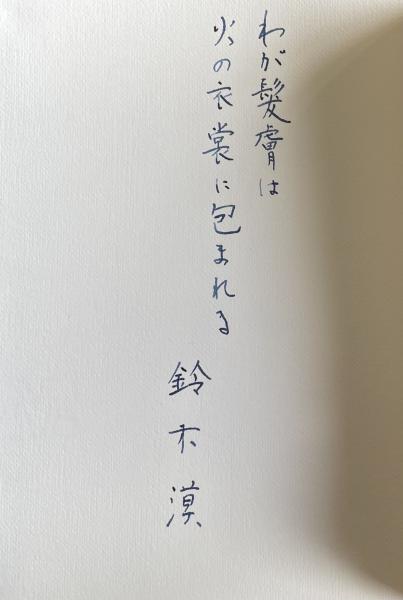 わが髪膚は
火の衣裳に包まれる
鈴木漠